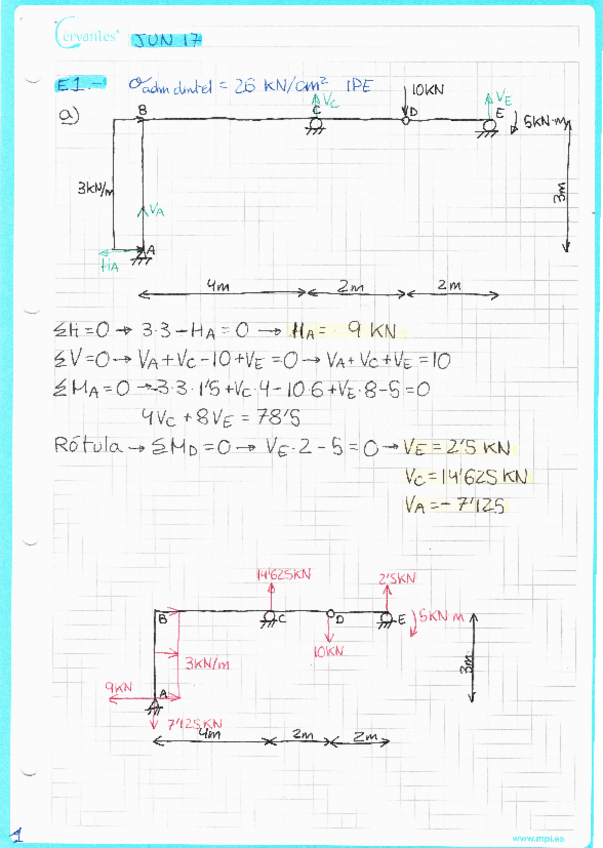 Cervantes®
JUN 17
E1.- σadm dintel = 26 KN/cm² IPE
a)
B
VC
C
10KN
D
VE
E
5KN·m
3KN/m
VA
A
HA
3m
4m 2m 2m
ΣH=0 → 3·3-HA=0 → HA= 9 KN
ΣV=0 → VA+VC-10+VE=0 → VA+VC+VE=10
ΣMA=0 → -3·3·1'5+VC·4-10·6+VE·8-5=0
4VC+8VE=78'5
Rótula → ΣMD=0 → VE·2-5=0 → VE=2'5 KN
VC=14'625 KN
VA=-7'125
14'625KN 2'5KN
B C D E 5KN m
10KN
3KN/m
3m
9KN A
7'125KN
4m 2m 2m
1
www.mpi.es